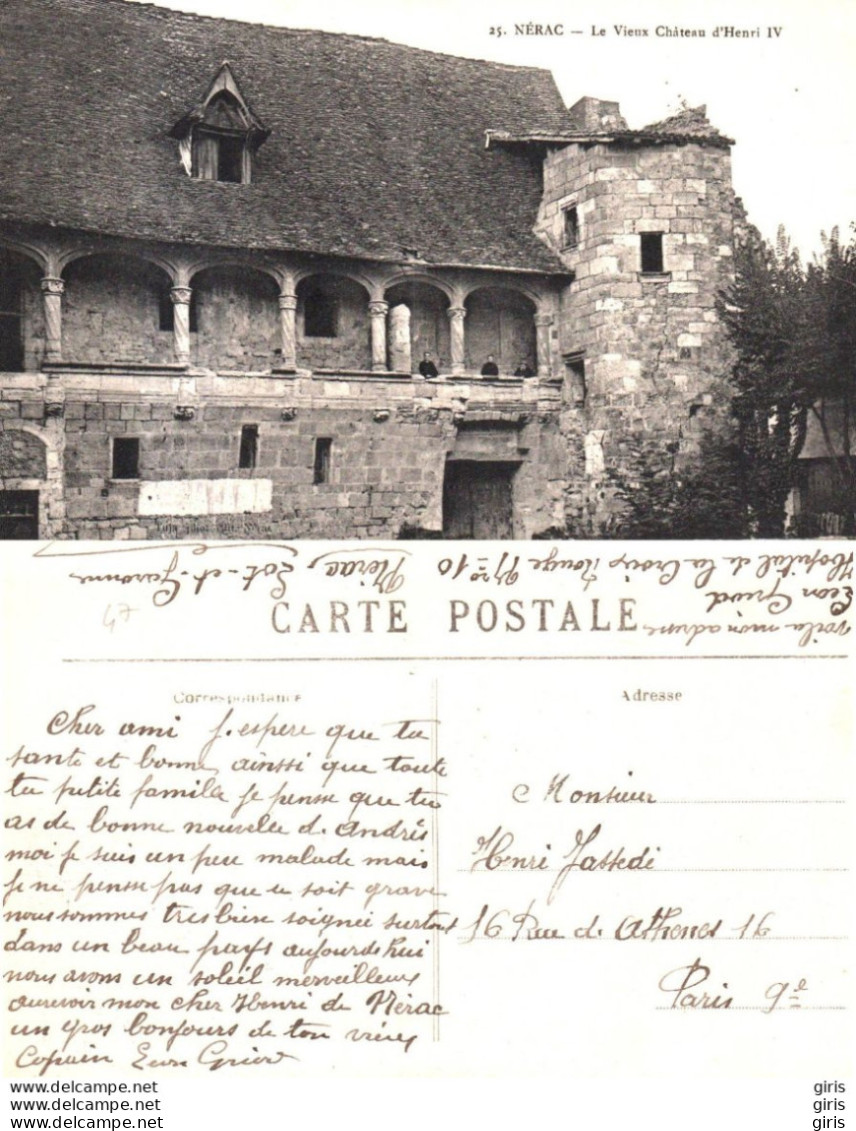 25. NÉRAC — Le Vieux Château d'Henri IV
voilà mon adresse
Leon
Hopital de la Croix Rouge Nro 10
Nérac, Lot-et-Garonne
CARTE POSTALE
Correspondance
Adresse
Cher ami j.espere que tu
sante et bonne ainsi que toute
tu petite famille je pense que tu
as de bonne nouvelle d. André
moi je suis un peu malade mais
je ne pense pas que ce soit grave
nous sommes tres bien soignée surtout
dans un beau pays aujourdehui
nous avons un soleil merveilleux
aurevoir mon cher Henri de Nérac
un gros bonjours de ton vieux
Copain Leon
Monsieur
Henri
16 Rue d. Athenes 16
Paris 9e
www.delcampe.net
www.delcampe.net
www.delcampe.net
giris
giris
giris